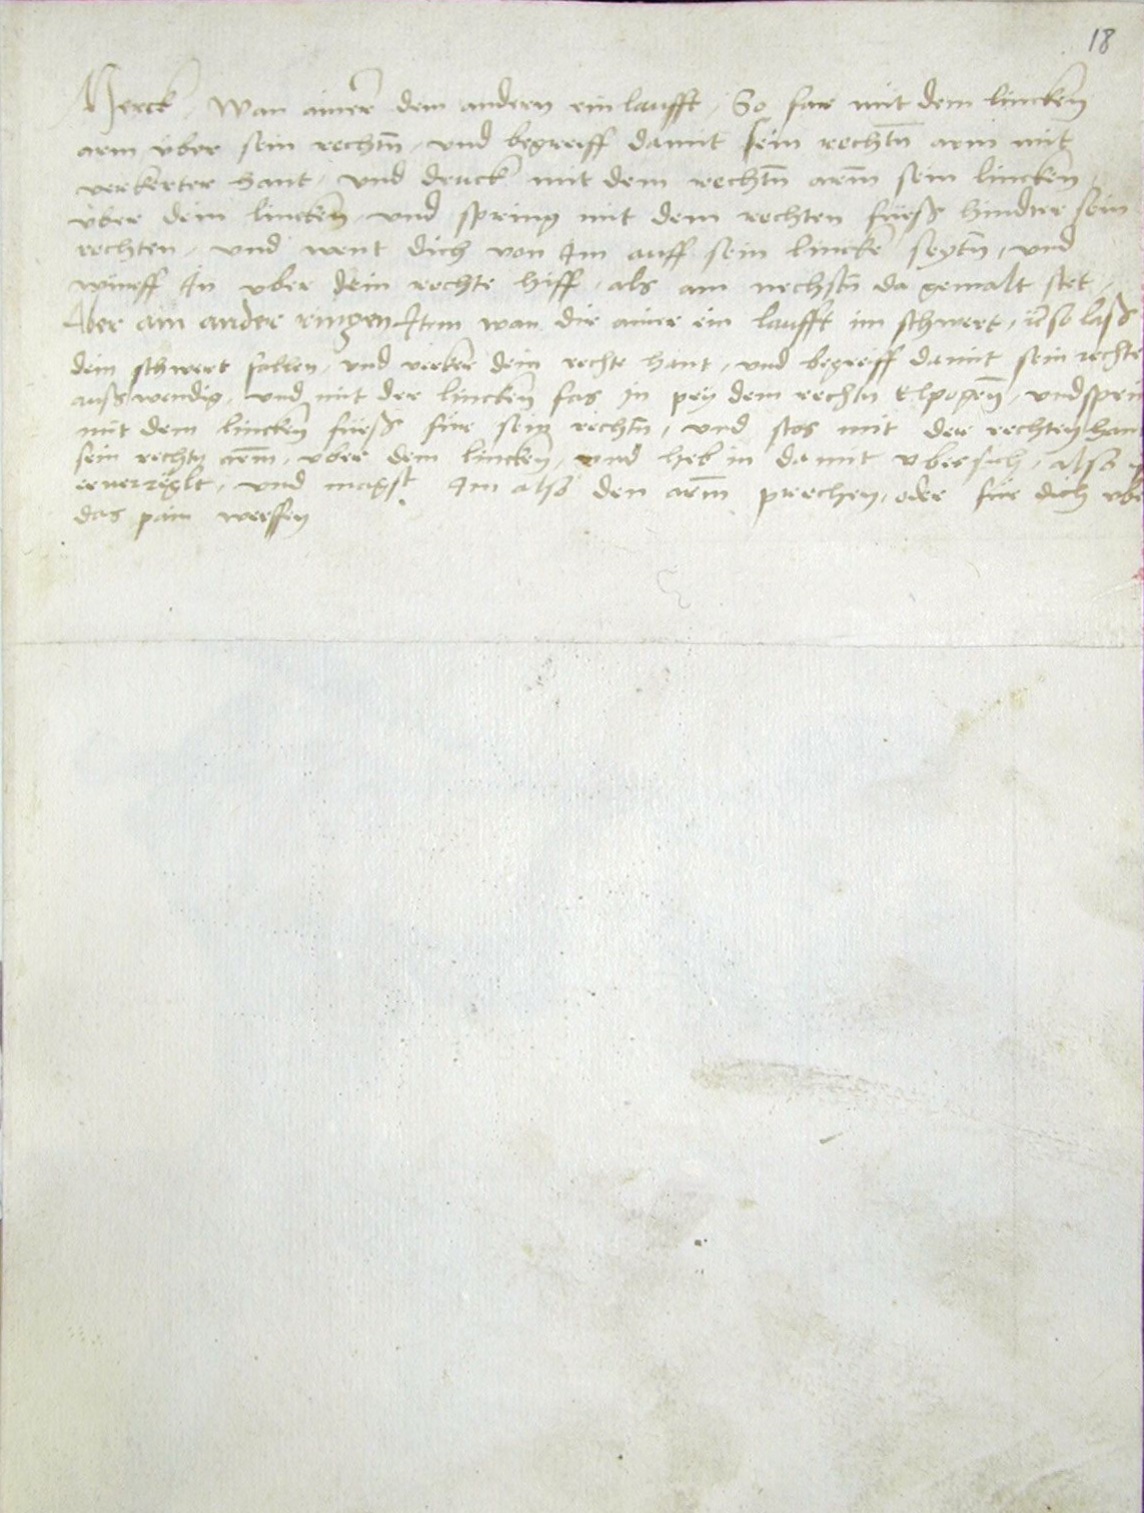 18
Merck Wan ainer dem andern ein laufft, So far mit dem lincken
arm über sein rechtn̄, und begreiff damit sein rechtn̄ arm mit
verkerter hant, und druck mit dem rechtn̄ arm̄ sein lincken,
über dein lincken, und spring mit dem rechten fueß hindter sein
rechten, und went dich von Im auff sein lincke seytn̄, und
wůrff In vber dein rechte hüff, als am nechstn̄ da gemalt stet,
Aber ain ander ringen Item wan dir ainer ein laufft im schwert, so laß
dein schwert fallen, und verker dein rechte hant, und begreiff damit sein rechte
außwendig, und mit der lincken fas in pey dem rechtn Elpogen̄, und sprin
mit dem lincken fueß für sein rechtn̄, und stos mit der rechten han
sein rechtn arm̄, vber dein lincken, und heb in damit vbersich, also
er verriglt, und magst Im also den arm̄ prechen, oder für dich vbe
das pain werffen